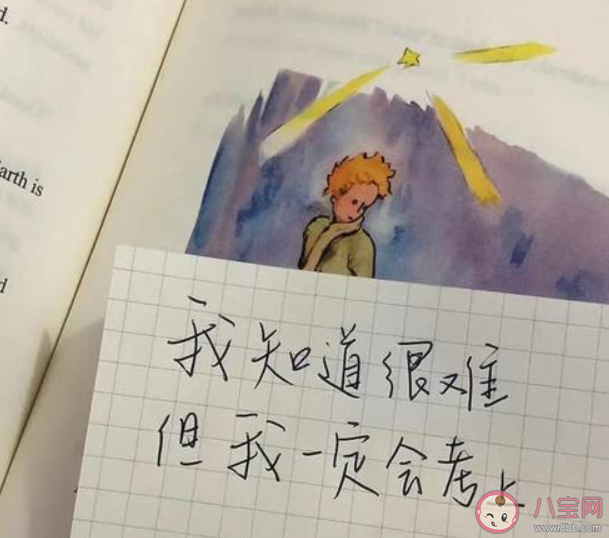 d.
arth is
d
我知道很难
但我一定会考上
八宝网
www.8bb.com